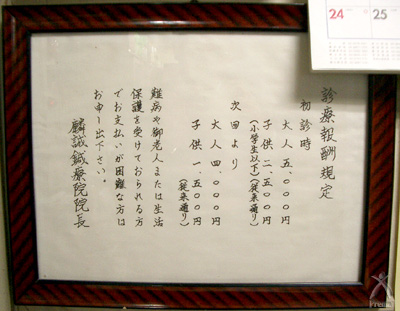 診療報酬規定
初診時
大人 五、〇〇〇円
子供 二、五〇〇円
(小学生以下)(従来通り)
次回より
大人 四、〇〇〇円
子供 一、五〇〇円
(従来通り)
難病や御老人または生活
保護を受けておられる方
でお支払いが困難な方は
お申し出下さい。
麟誠鍼療院院長
24
25